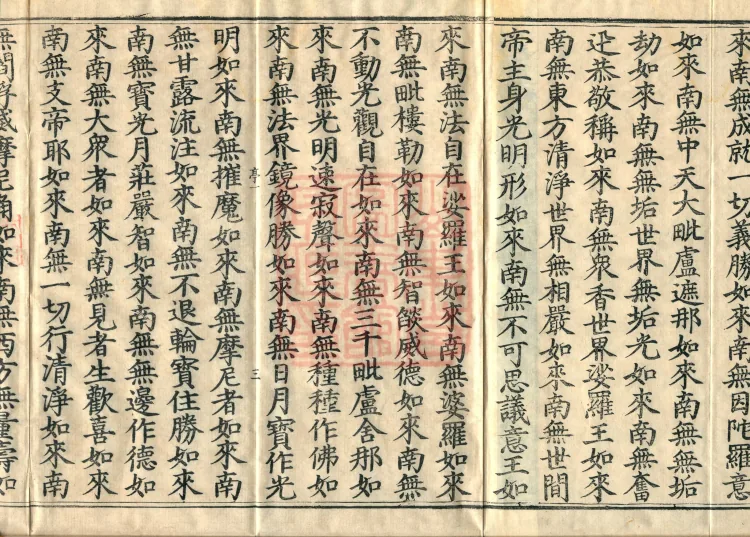 來南無成就一切義勝如來南無因陀羅意
如來南無中天大毗盧遮那如來南無無垢
劫如來南無無垢世界無垢光如來南無奮
迅恭敬稱如來南無衆香世界娑羅王如來
南無東方清淨世界無相嚴如來南無世間
帝主身光明形如來南無不可思議意王如
來南無法自在娑羅王如來南無婆羅如來
南無毗樓勒如來南無智燄威德如來南無
不動光觀自在如來南無三千毗盧舍那如
來南無光明速寂聲如來南無種種作佛如
來南無法界鏡像勝如來南無日月寶作光
三
明如來南無摧魔如來南無摩尼者如來南
無甘露流注如來南無不退輪寶住勝如來
南無寶光月莊嚴智如來南無無邊作德如
來南無大衆者如來南無見者生歡喜如來
南無支帝耶如來南無一切行清淨如來南
無間浮威摩尼角如來南無西方無量壽如